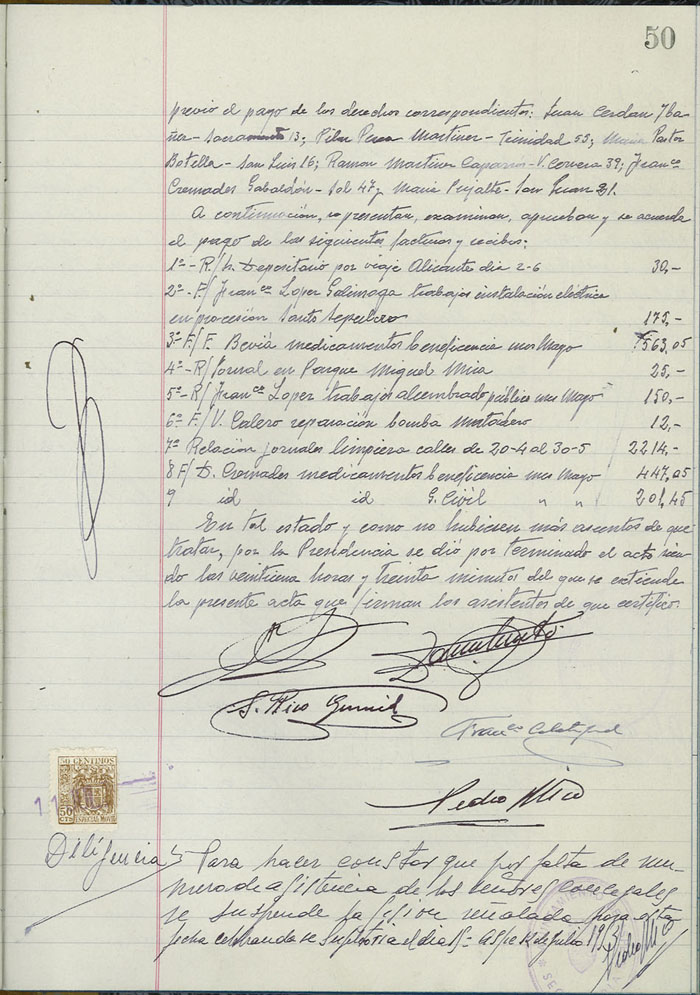 50
previo el pago de los derechos correspondientes: Juan Cerdan Iba-
ñez - Sacramento 13; Pilar Perea Martinez - Trinidad 55; Maria Pastor
Botella - San Luis 16; Ramon Martinez Caparros - V. Cervera 39; Franco
Cremades Gabaldón - Sol 47 y Maria Prijalte - San Juan 21.
A continuación, se presentan, examinan, aprueban y se acuerda
el pago de las siguientes facturas y recibos:
1º - R/ Sr. Depositario por viaje Alicante dia 2-6 30,-
2º - F/ Franco Lopez Galinsoga trabajos instalación electrica
en procesion Santo Sepulcro 175,-
3º F/ F. Beviá medicamentos beneficencia mes Mayo 563,05
4º - R/ Jornal en Parque Miguel Mira 25,-
5º - R/ Franco Lopez trabajos alumbrado público mes Mayo 150,-
6º F/ V. Calero reparación bomba matadero 12,-
7º Relación jornales limpieza calles de 20-4 al 30-5 2214,-
8 F/ D. Cremades medicamentos beneficencia mes Mayo 447,05
9 id id G. Civil " " 201,45
En tal estado y como no hubiesen más asuntos de que
tratar, por la Presidencia se dió por terminado el acto sien-
do las veintiuna horas y treinta minutos del que se extiende
la presente acta que firman los asistentes de que certifico.
S. Rico
Franco
Pedro Mico
50 CENTIMOS
50 CTS
ESPECIAL MOVIL
Diligencia
Para hacer constar que por falta de nu-
mero de asistencia de los señores concejales
se suspende la sesion señalada para esta
fecha celebrandose supletoria el dia 15 - Aspe 12 de Julio 19
Pedro Mico